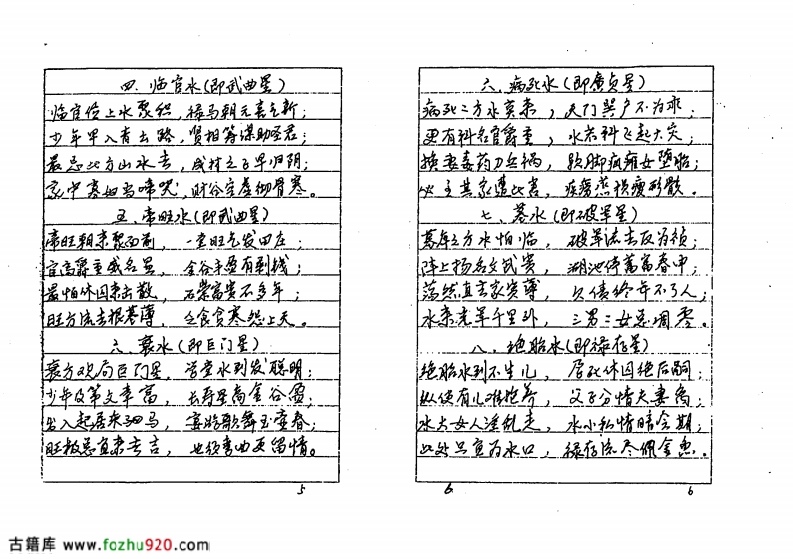 四、临官水(即武曲星)
临官位上水聚积，禄马朝元喜气新；
少年早入青云路，贤相筹谋助圣君；
最忌此方山水去，成材之子早归阴；
家中寡妇常啼哭，财谷空虚彻骨寒。
五、帝旺水(即武曲星)
帝旺朝来聚面前，一堂旺气发田庄；
官高爵重威名显，金谷丰盈有剩钱；
最怕休囚来击散，石崇富贵不多年；
旺方流去根基薄，乏食贫寒怨上天。
六、衰水(即巨门星)
衰方观局巨门星，学堂水到发聪明；
少年及第文章富，长寿星高金谷盈；
出入起居乘驷马，宴游歌舞玉堂春；
旺极总宜来去吉，也须弯曲更留情。
5
六、病死水(即廉贞星)
病死二方水莫来，天门巽户不为乖；
更有科名官爵重，水若斜飞起大灾；
换妻毒药刀兵祸，软脚疯瘫女堕胎；
必主其家遭此害，疾痨蒸损瘦形骸。
七、墓水(即破军星)
墓库之方水怕临，破军流去反为祯；
阵上扬名文武贵，湖池停蓄富春申；
荡然直去家资薄，欠债终年不了人；
水来充军千里外，三男二女总凋零。
八、绝胎水(即禄存星)
绝胎水到不生儿，居死休囚绝后嗣；
纵使有儿难抱养，父子分情夫妻离；
水大女人淫乱走，水小私情暗会期；
此处只宜为水口，禄存流尽佩金鱼。
6
6
古籍库 www.fozhu920.com